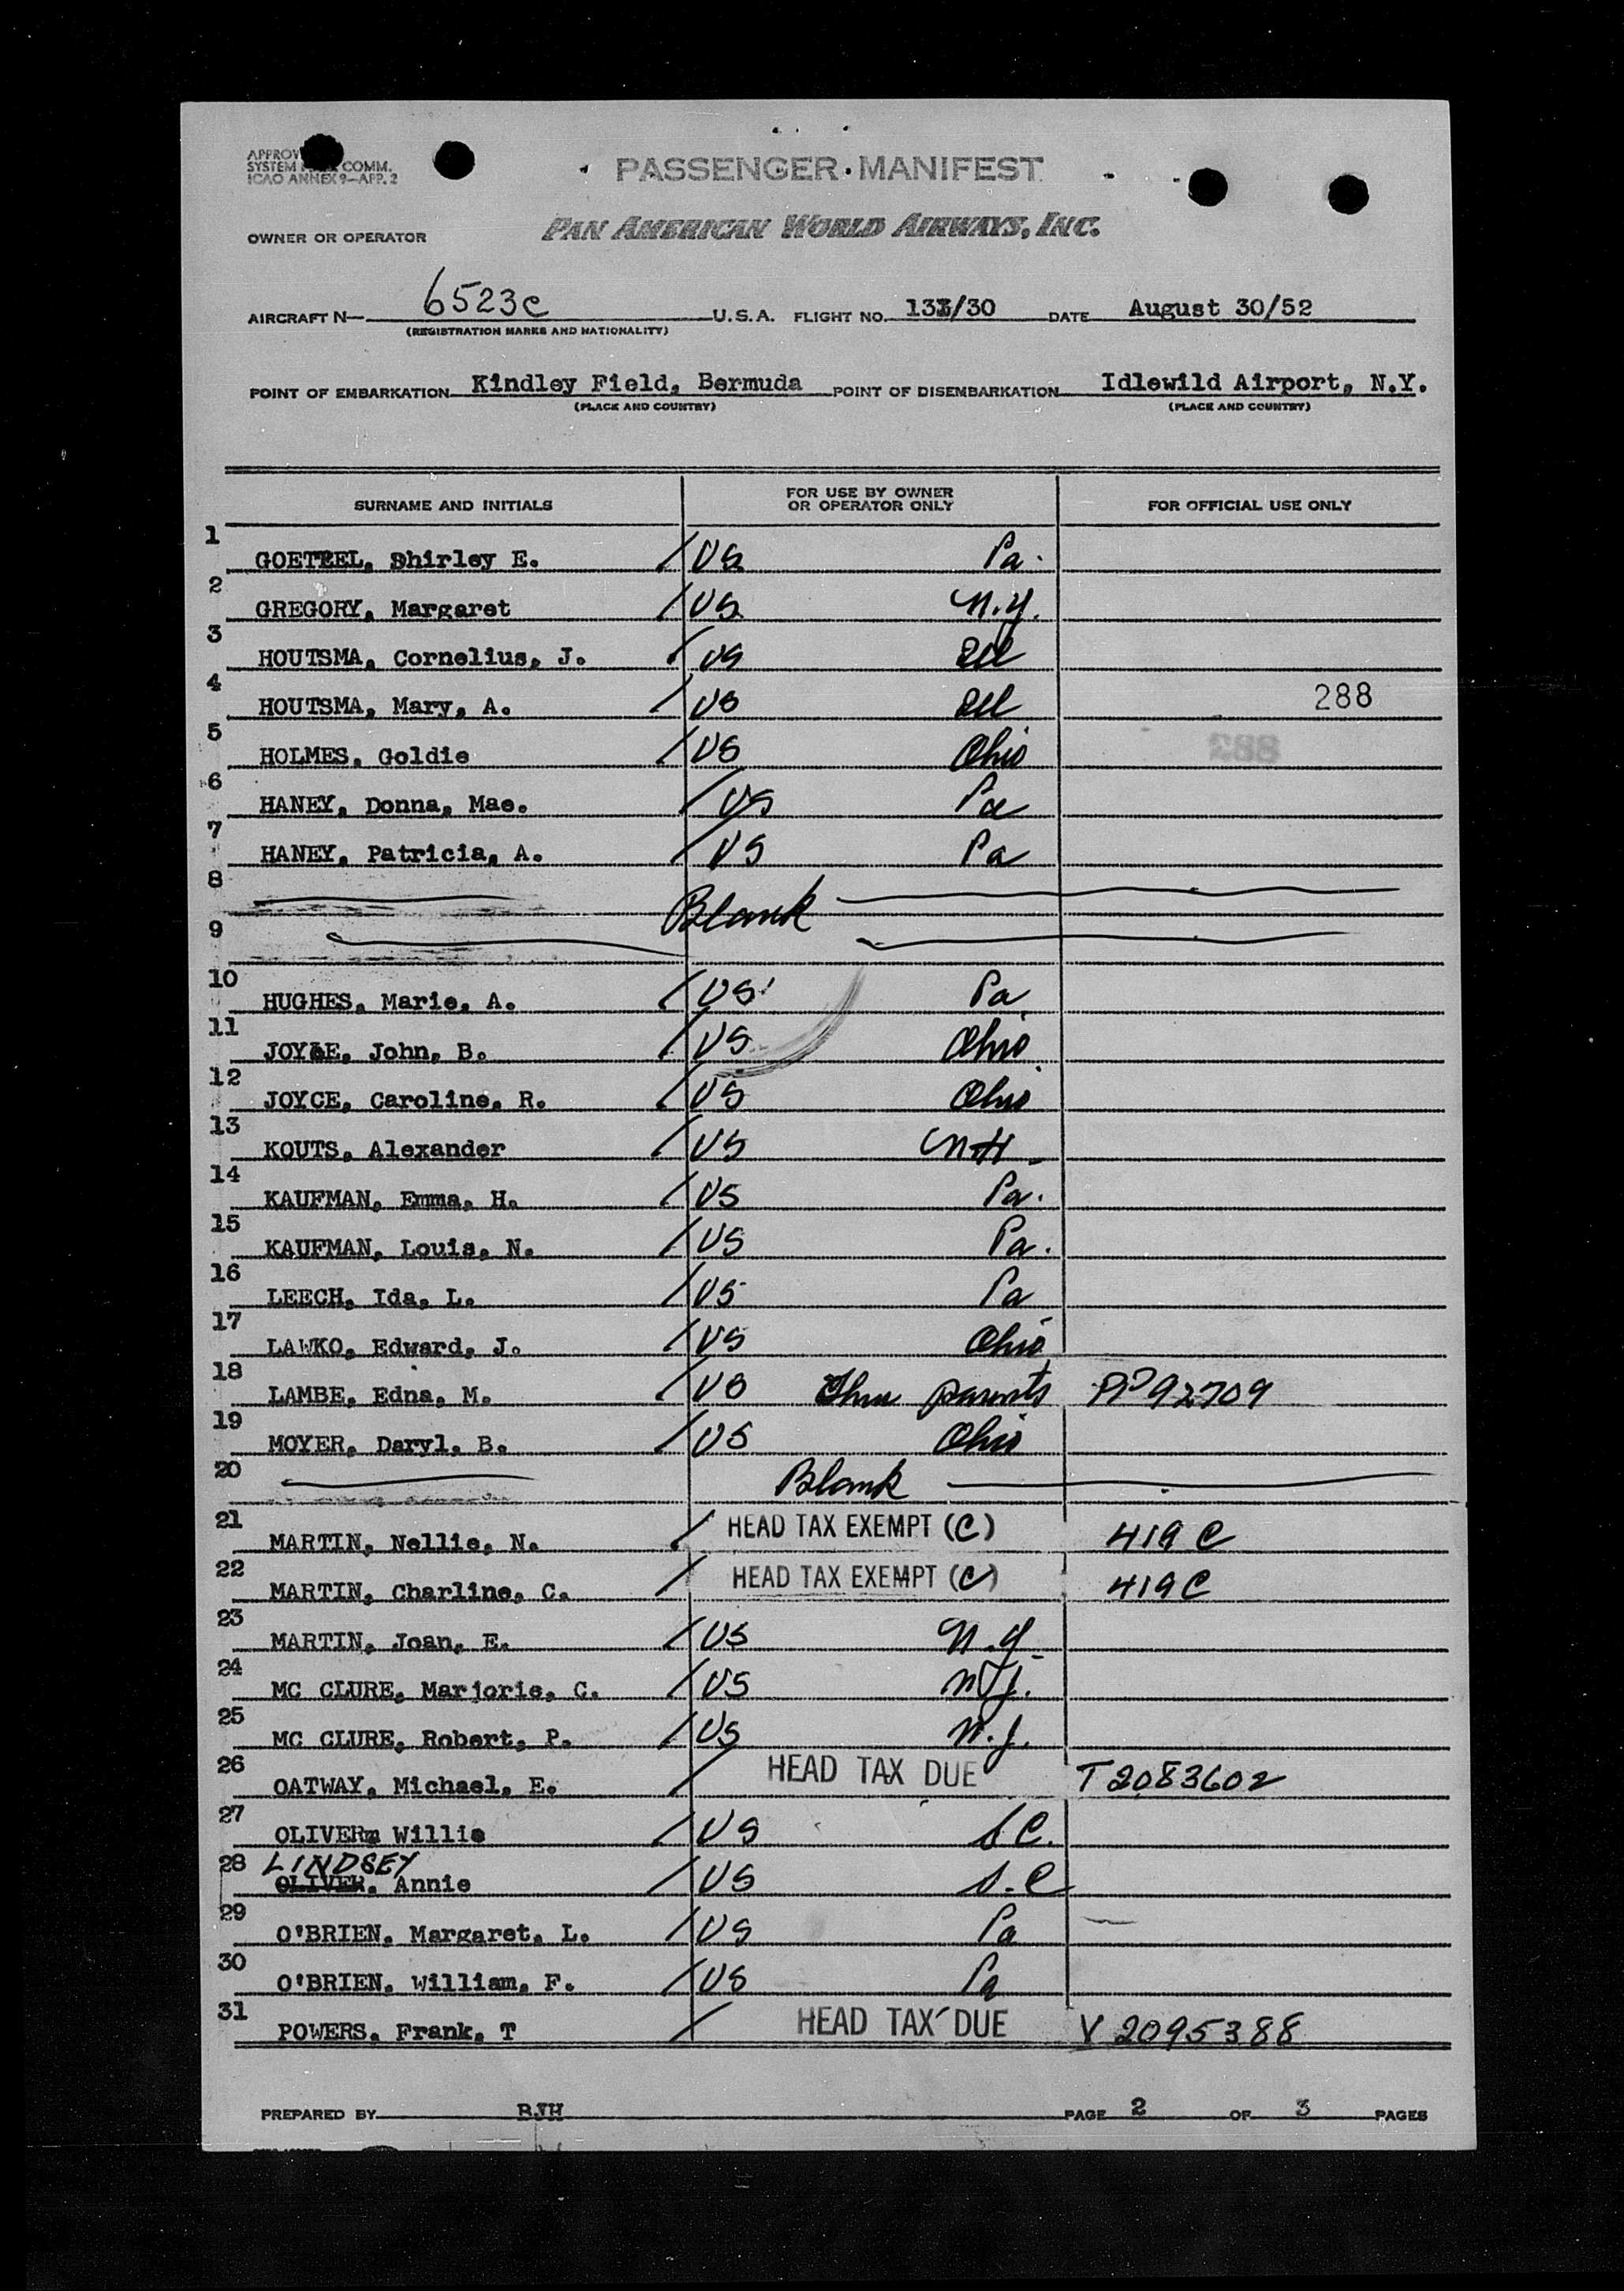 PASSENGER MANIFEST
SYSTEM COMM.
ICAO ANNEX 9—APP. 2
OWNER OR OPERATOR PAN AMERICAN WORLD AIRWAYS, INC.
AIRCRAFT N— 6523C U.S.A. FLIGHT NO. 131/30 DATE August 30/52
(REGISTRATION MARKS AND NATIONALITY)
POINT OF EMBARKATION Kindley Field, Bermuda POINT OF DISEMBARKATION Idlewild Airport, N.Y.
(PLACE AND COUNTRY) (PLACE AND COUNTRY)
SURNAME AND INITIALS FOR USE BY OWNER OR OPERATOR ONLY FOR OFFICIAL USE ONLY
1 GOETZEL, Shirley E. / US Pa.
2 GREGORY, Margaret / US N.Y.
3 HOUTSMA, Cornelius, J. / US Ill
4 HOUTSMA, Mary, A. / US Ill 288
5 HOLMES, Goldie / US Ohio 288
6 HANEY, Donna, Mae. / US Pa
7 HANEY, Patricia, A. / US Pa
8 Blank
9
10 HUGHES, Marie, A. / US Pa
11 JOYCE, John, B. / US Ohio
12 JOYCE, Caroline, R. / US Ohio
13 KOUTS, Alexander / US NH
14 KAUFMAN, Emma, H. / US Pa.
15 KAUFMAN, Louis, N. / US Pa.
16 LEECH, Ida, L. / US Pa
17 LAWKO, Edward, J. / US Ohio
18 LAMBE, Edna, M. / US Thru parents PP 92709
19 MOYER, Daryl, B. / US Ohio
20 Blank
21 MARTIN, Nellie, N. / HEAD TAX EXEMPT (C) 419 C
22 MARTIN, Charline, C. / HEAD TAX EXEMPT (C) 419 C
23 MARTIN, Joan, E. / US N.Y.
24 MC CLURE, Marjorie, C. / US N.J.
25 MC CLURE, Robert, P. / US N.J.
26 OATWAY, Michael, E. / HEAD TAX DUE T 2083602
27 OLIVER, Willie / US S.C.
28 LINDSEY
OLIVER, Annie / US S.C
29 O'BRIEN, Margaret, L. / US Pa
30 O'BRIEN, William, F. / US Pa
31 POWERS, Frank, T / HEAD TAX DUE V 2095388
PREPARED BY BJH PAGE 2 OF 3 PAGES